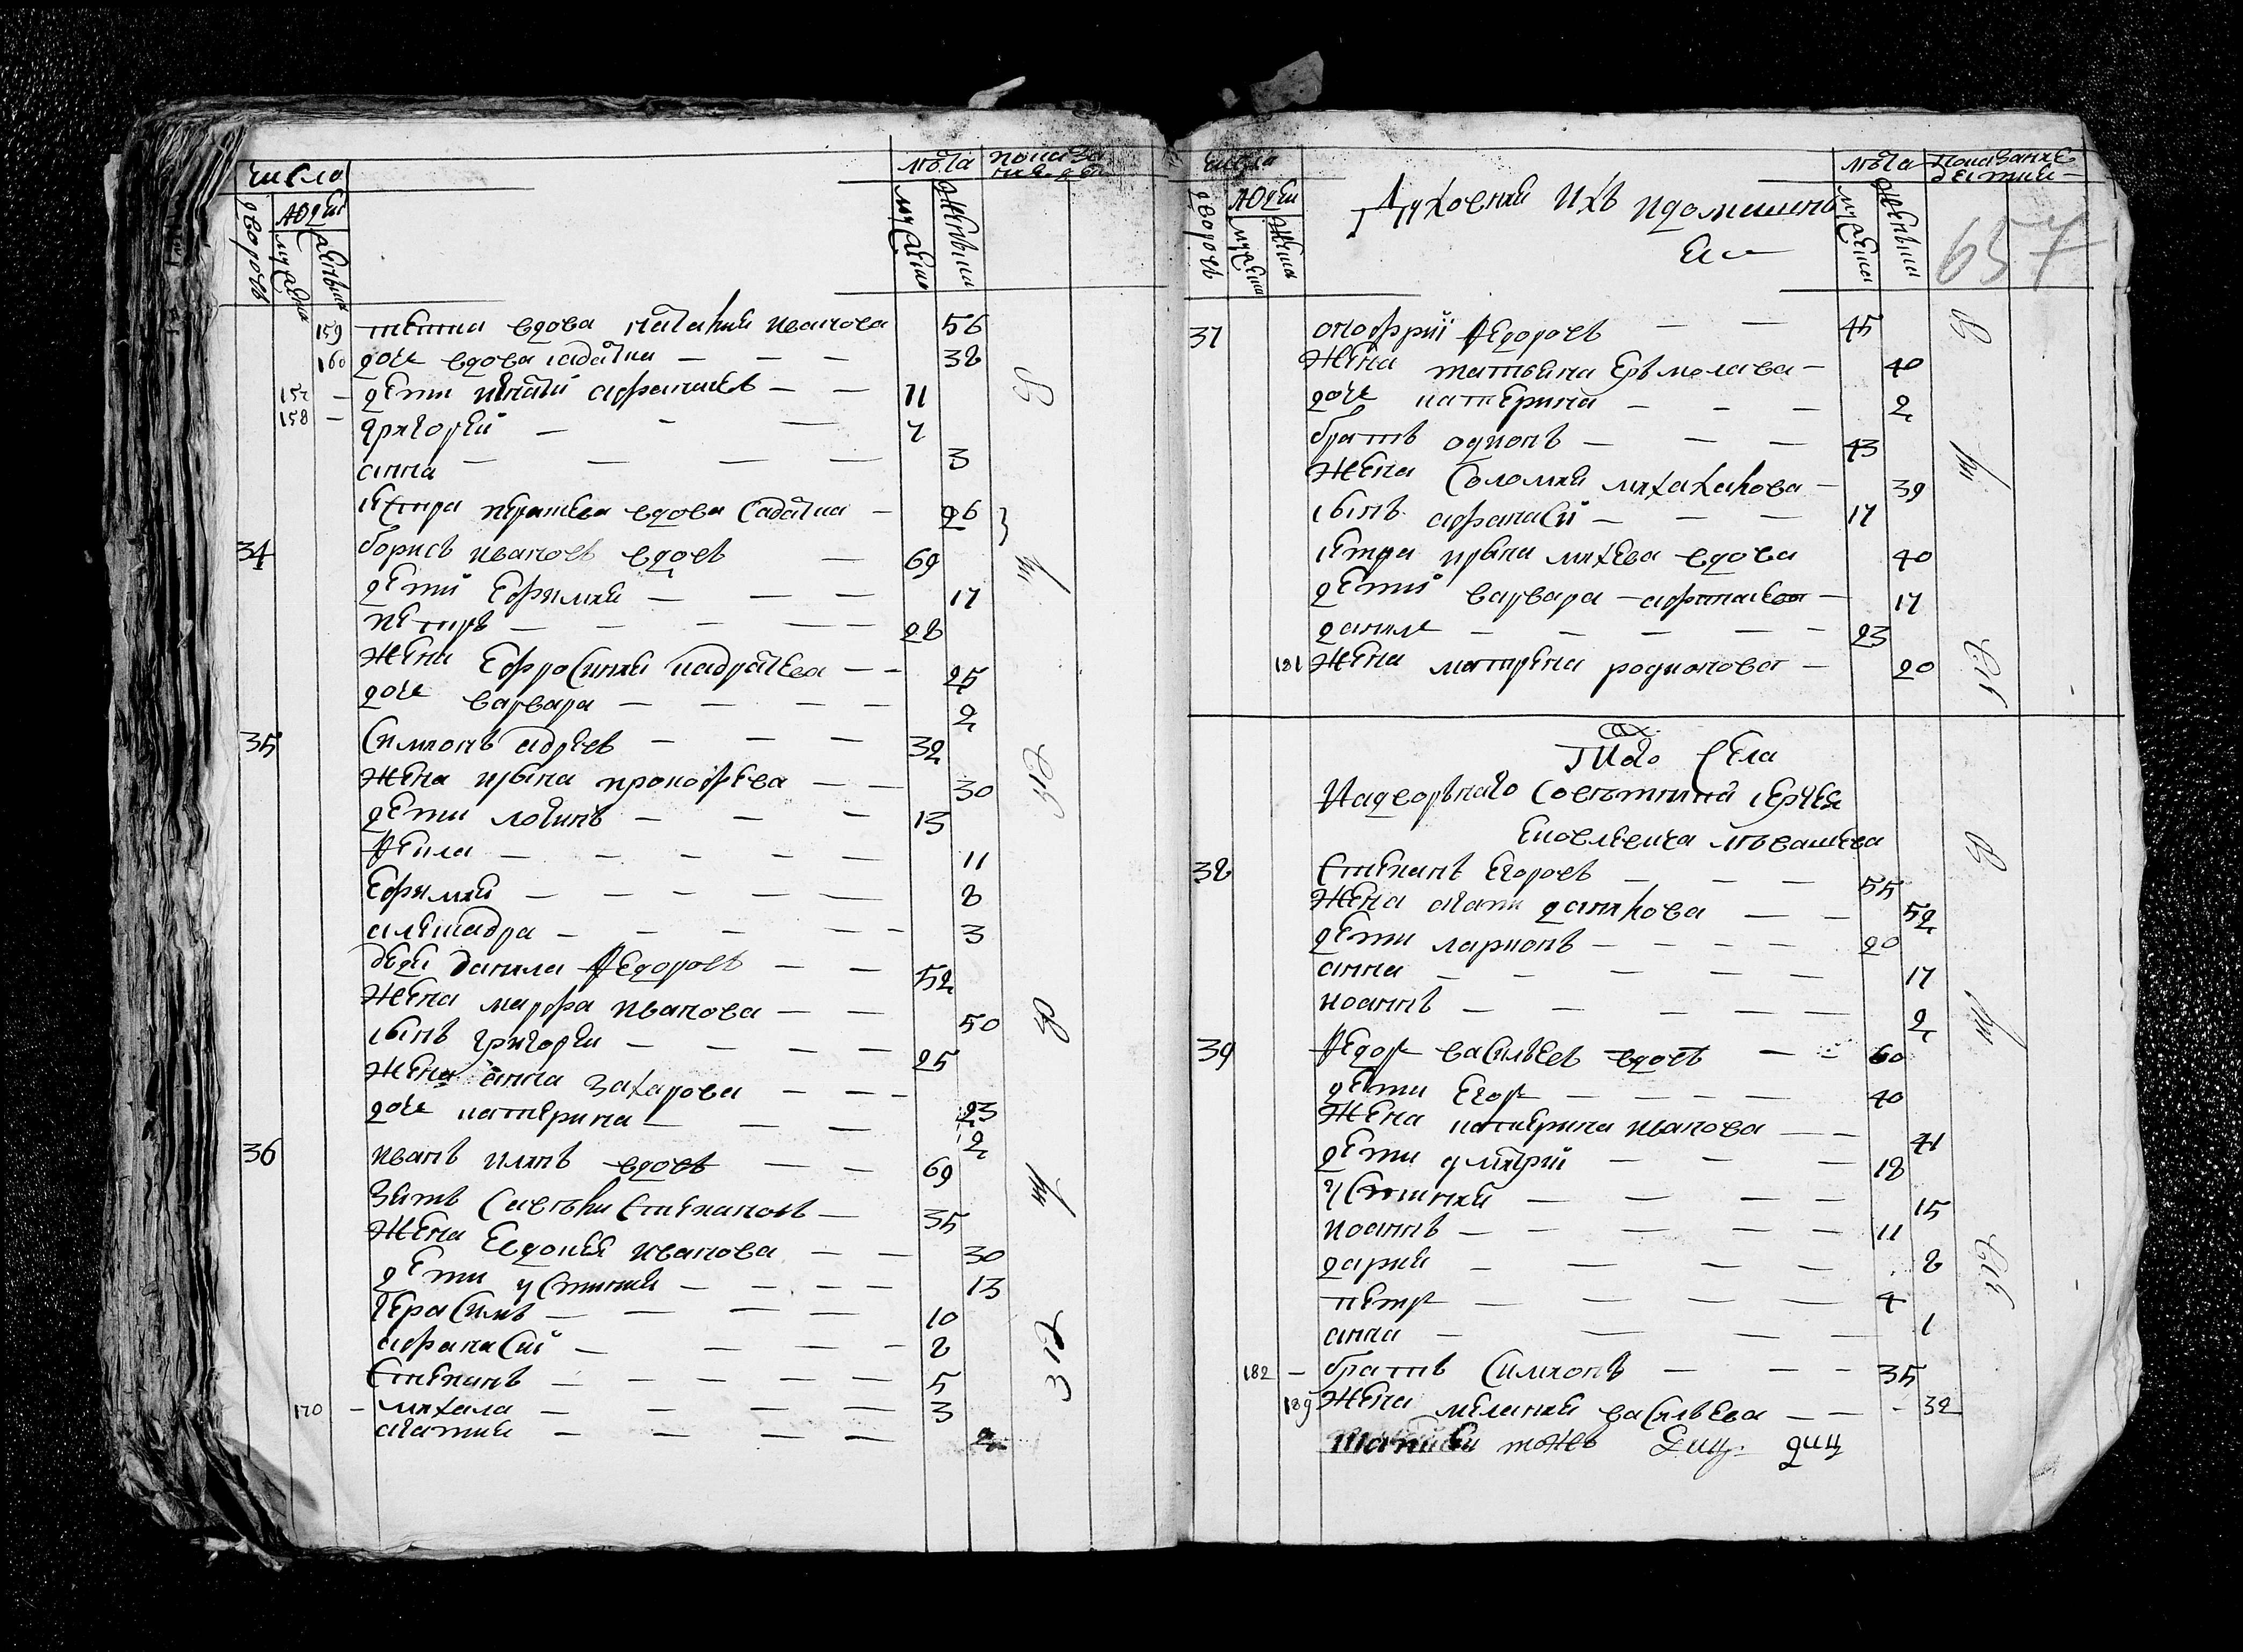 число
лѣта показание дѣ
дворовъ
людей
мужеска
женска
мужеска
женска
159 тетка вдова наталия иванова 56
160 дочь вдова 38
157 – дети игнатий афанасиевъ 11
158 – григорей 7
анна 3
сестра вдова 26
34 борисъ ивановъ вдовъ 69
дети ефимия 17
петръ 28
жена ефросиния кадратева 25
дочь варвара 2
35 симионъ адреевъ 32
жена ирина прокофева 30
дети логинъ 13
фекла 11
ефимия 8
алексадра 3
дядя данила федоровъ 52
жена марфа иванова 50
сынъ григорей 25
жена анна захарова 23
дочь катерина 2
36 иванъ илинъ вдовъ 69
зять савелий степановъ 35
жена евдокия иванова 30
дети устиния 13
герасимъ 10
афанасий 8
степанъ 5
170 – михаила 3
агафия 2
число
Духовния ихъ и домашния
ея
лѣта показание
657
дворовъ
людей
мужеска
женска
мужеска
женска
37 онофрий федоровъ 45
жена татьяна ермолаева 40
дочь катерина 2
братъ одионъ 43
жена соломия михайлова 39
сынъ афанасий 17
сестра ирина михева вдова 40
дети варвара 17
данила 23
181 жена матрена родионова 20
того села
надворнаго советника сергея
яковлевича
38 степанъ егоровъ 55
жена агафия данилова 52
дети ларионъ 20
анна 17
иоаннъ 2
39 федоръ василевъ вдовъ 60
дети егоръ 40
жена катерина иванова 41
дети дмитрий 18
устиния 15
иоаннъ 11
дария 8
петръ 4
анна 1
182 – братъ симионъ 35
189 жена мелания василева 32